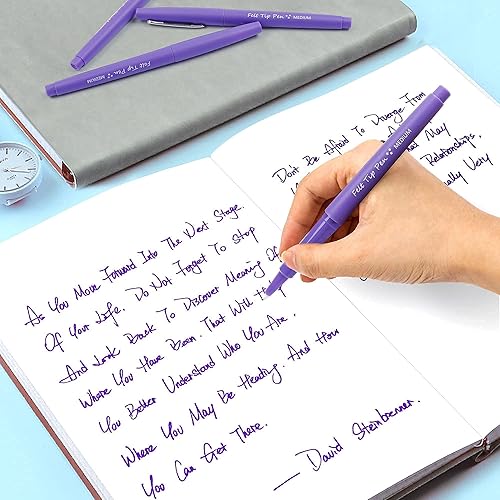 Felt Tip Pen MEDIUM
Felt Tip Pen MEDIUM
Felt Tip Pen MEDIUM
As You Move Forward Into The Next Stage
Of Your Life. Do Not Forget To Stop
And Look Back To Discover Meaning Of
Where You Have Been. That Will
You Better Understand Who You Are.
Where You May Be Heading. And How
You Can Get There.
— David Steinbrenner.
Don't Be Afraid To Diverge From
May
Relationships,
Very